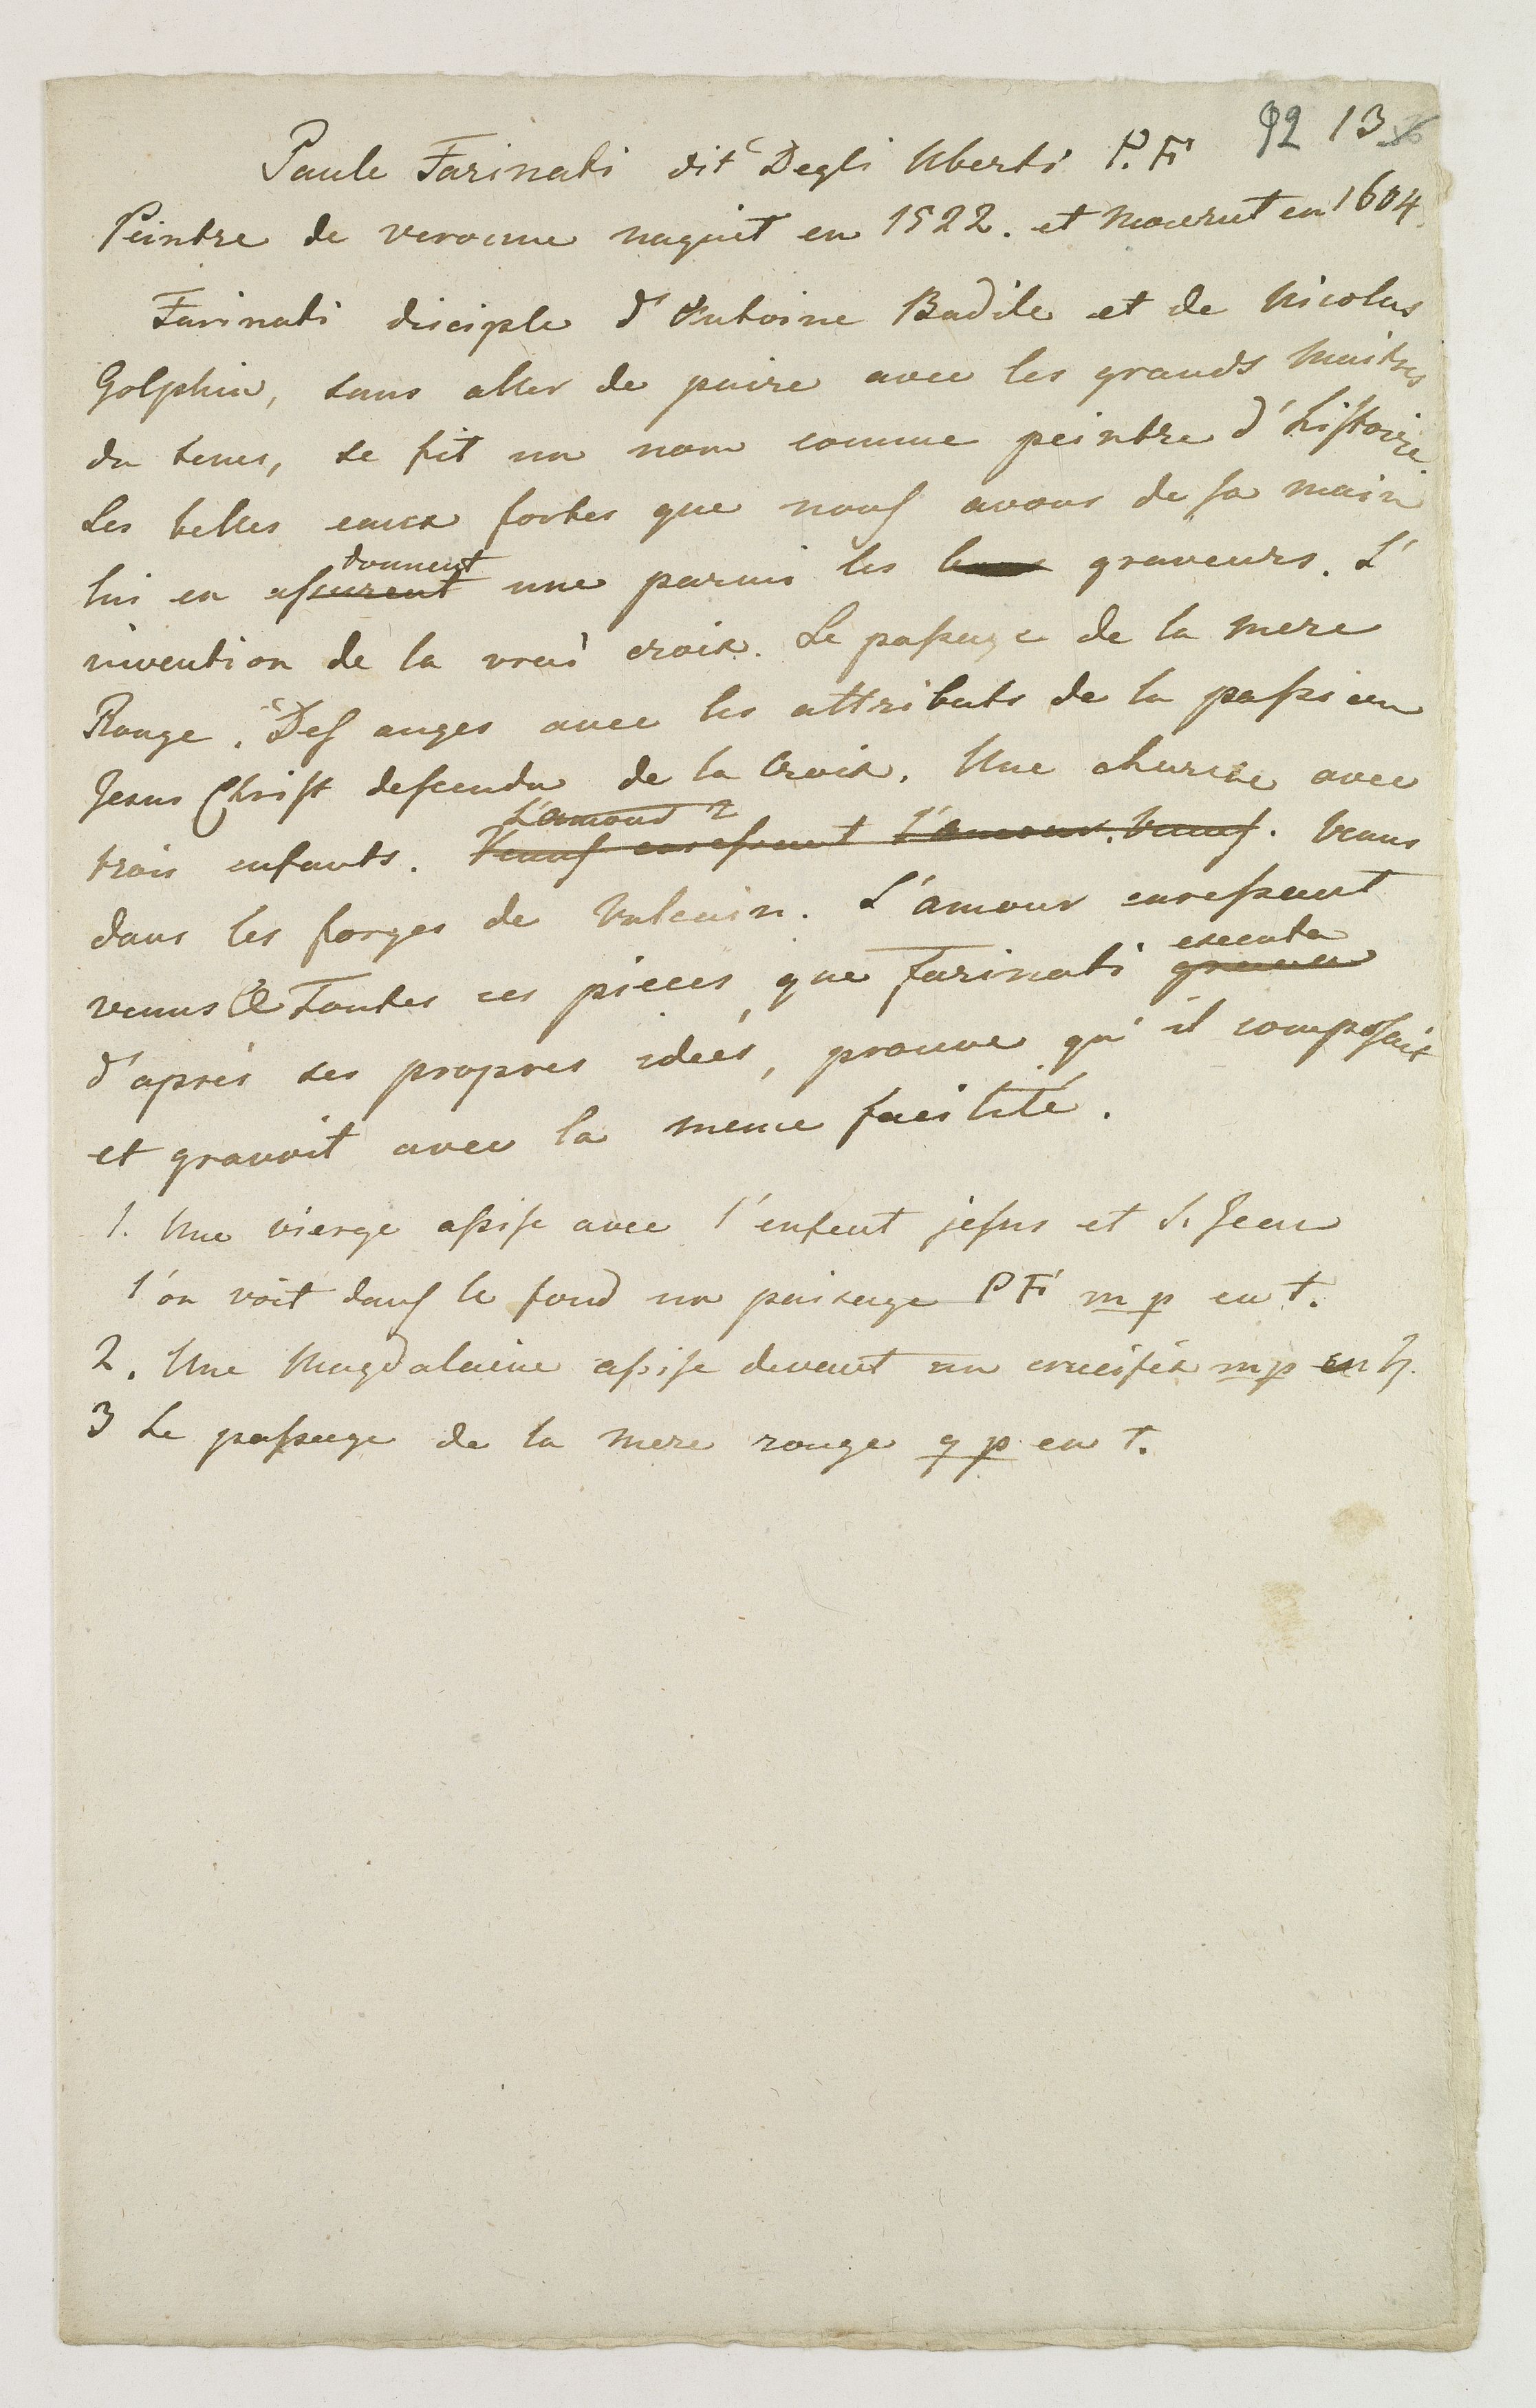 92 13
Paule Farinati dit Degli Uberti P. Fi
Peintre de veronne naquit en 1522. et mourut en 1604.
Farinati disciple d'Antoine Badile et de Nicolas
Golphin, sans aller de paire avec les grands maitres
du tems, se fit un nom comme peintre d'histoire.
Les belles eaux fortes que nous avons de sa main
donnent
lui en assurent une parmi les graveurs. L'
invention de la vrai croix. Le passage de la mere
Rouge. Des anges avec les attributs de la passion
Jesus Christ descendu de la Croix. Une charite avec
L'amour
trois enfants. Venus caressant l'amour. Venus. Venus
dans les forges de Vulcain. L'amour caressant
executa
venus Toutes ces pieces, que Farinati grava
d'après ses propres ideés, prouve qu'il composait
et gravoit avec la meme facilité.
1. Une vierge assise avec l'enfent jesus et S. Jean
l'on voit dans le fond un paisage P Fi m p en t.
2. Une Magdalaine assise devant un crucifix m p en h.
3 Le passage de la mere rouge g p en t.